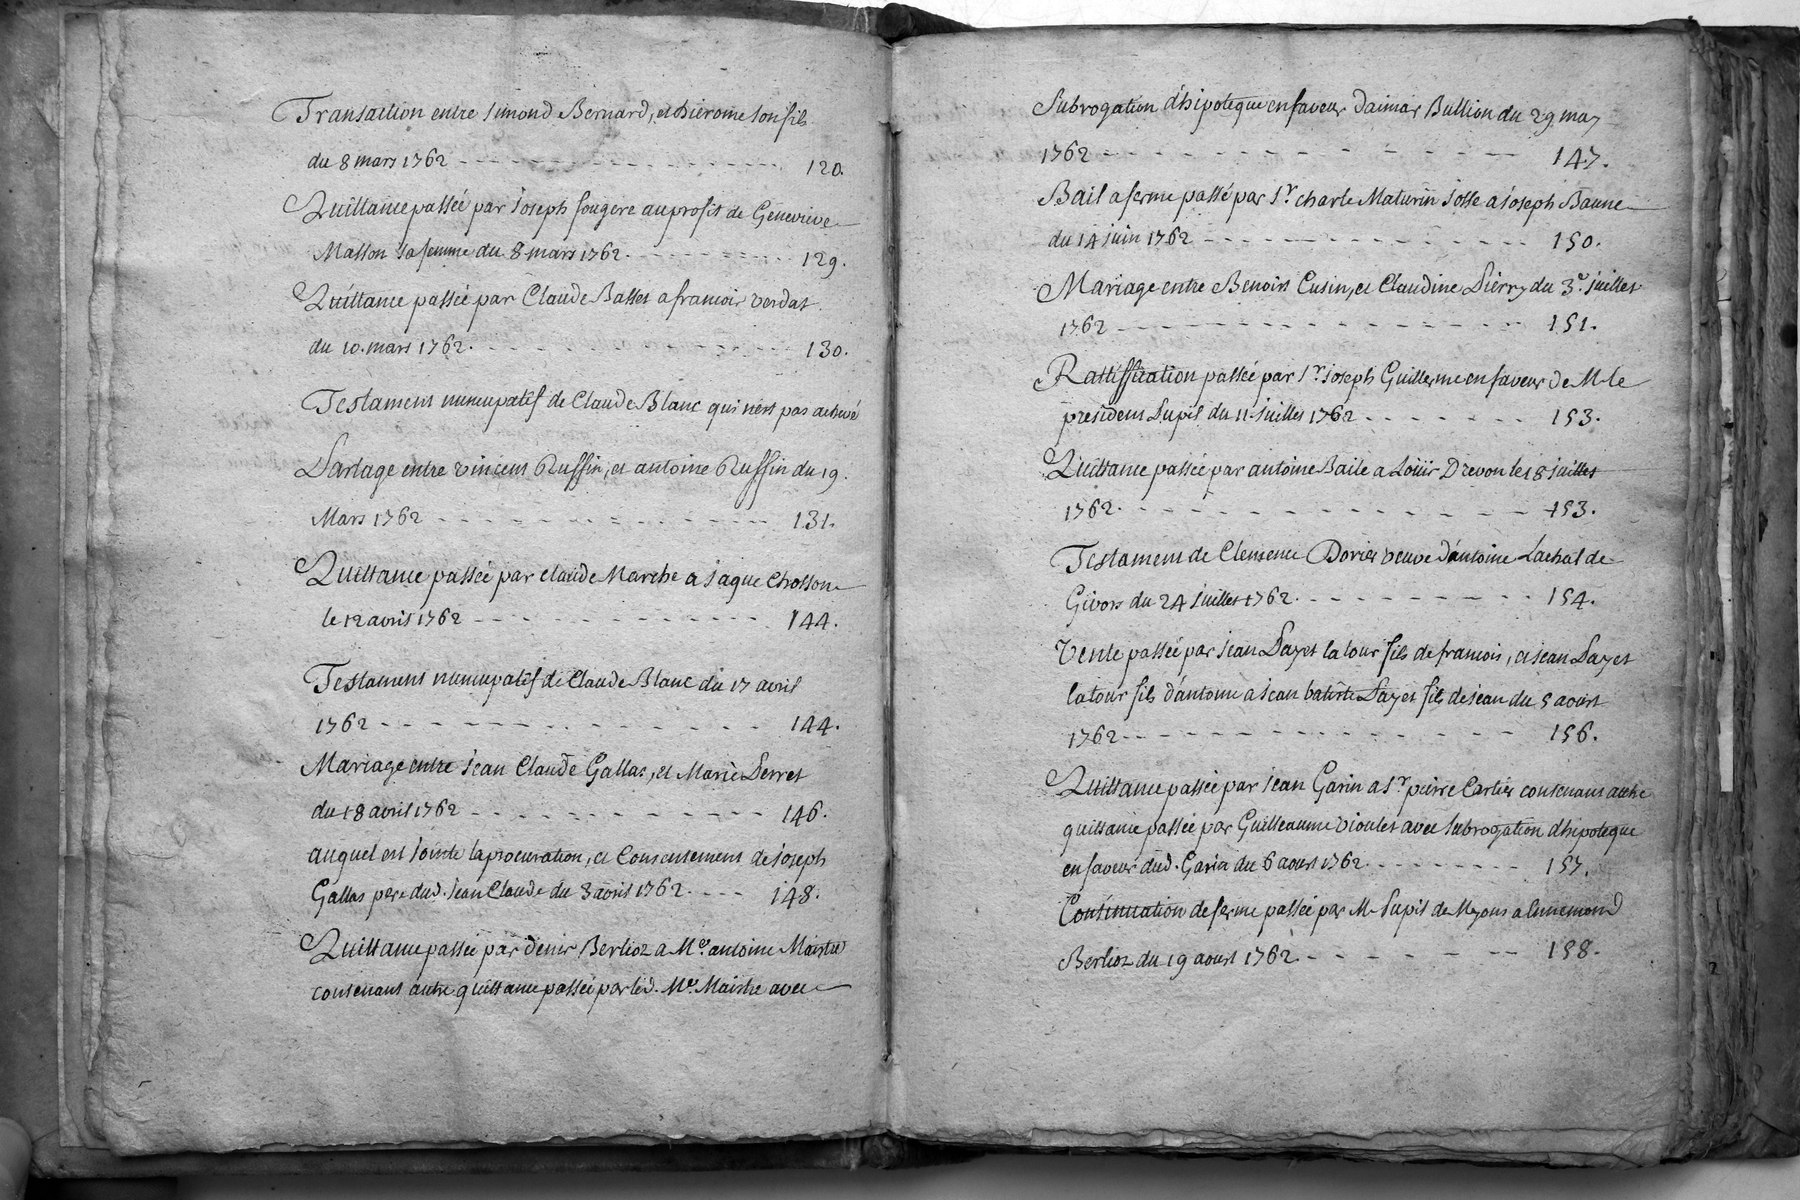 Transaction entre Simond Bernard, et hierome son fils
du 8 mars 1762 120.
Quittance passée par Joseph fougere au profit de Genevieve
Masson sa femme du 8 mars 1762. 129.
Quittance passée par Claude Basset a francois verdat
du 10. mars 1762. 130.
Testament nuncupatif de Claude Blanc qui nest pas achevé
Partage entre vincent Ruffin, et antoine Ruffin du 19.
Mars 1762 131.
Quittance passée par claude Marche a Jaque Chosson
le 12 avril 1762 144.
Testament nuncupatif de Claude Blanc du 17 avril
1762 144.
Mariage entre Jean Claude Gallas, et Marie Perret
du 18 avril 1762 146.
auquel est Jointe la procuration, et Consentement de Joseph
Gallas pere dud. Jean Claude du 3 avril 1762. 148.
Quittance passée par denis Berlioz a Me. antoine Maistre
contenant autre quittance passée par led. Me. Maistre avec
Subrogation d'hipoteque en faveur daimar Bullion du 29 may
1762 147.
Bail a ferme passé par Sr. charle Maturin Josse a Joseph Baune
du 14 juin 1762 150.
Mariage entre Benoist Cusin, et Claudine Pierry du 3e. juillet
1762 151.
Rattiffication passée par Sr. joseph Guillerme en faveur de M. le
president Pupil du 11. juillet 1762 153.
Quittance passée par antoine Baile a Loüis Drevon le 18 juillet
1762. 153.
Testament de Clemence Dorier veuve d'antoine Lachal de
Givors du 24 Juillet 1762. 154.
Vente passée par Jean Payet latour fils de francois, et Jean Payet
latour fils d'antoine a Jean batiste Payet fils de Jean du 5 aoust
1762 156.
Quittance passée par Jean Garin a Sr. pierre Cartier contenant autre
quittance passée par Guilleaume violet avec Subrogation d'hipoteque
en faveur dud. Garin du 6 aoust 1762. 157.
Continuation de ferme passée par M. Pupil de Myons a Ennemond
Berlioz du 19 aoust 1762. 158.